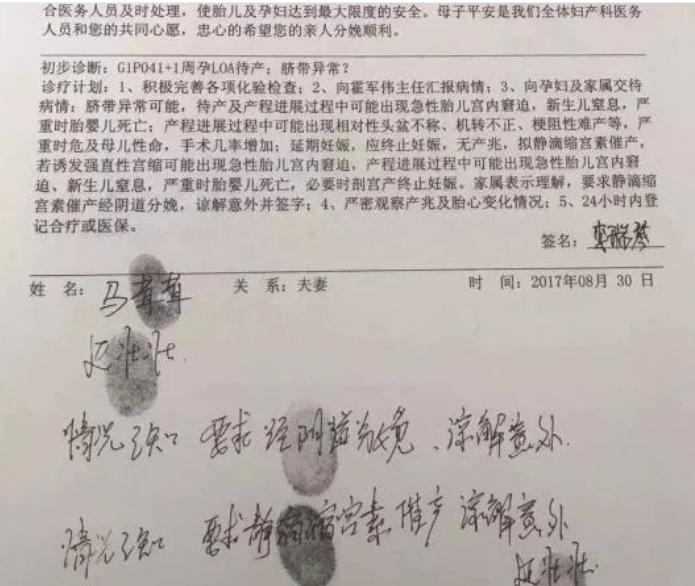 合医务人员及时处理，使胎儿及孕妇达到最大限度的安全。母子平安是我们全体妇产科医务
人员和您的共同心愿，忠心的希望您的亲人分娩顺利。
初步诊断：G1P041+1周孕LOA待产；脐带异常？
诊疗计划：1、积极完善各项化验检查；2、向霍军伟主任汇报病情；3、向孕妇及家属交待
病情：脐带异常可能，待产及产程进展过程中可能出现急性胎儿宫内窘迫，新生儿窒息，严
重时胎婴儿死亡；产程进展过程中可能出现相对性头盆不称、机转不正、梗阻性难产等，严
重时危及母儿性命，手术几率增加；延期妊娠，应终止妊娠，无产兆，拟静滴缩宫素催产，
若诱发强直性宫缩可能出现急性胎儿宫内窘迫，产程进展过程中可能出现急性胎儿宫内窘
迫、新生儿窒息，严重时胎婴儿死亡，必要时剖宫产终止妊娠。家属表示理解，要求静滴缩
宫素催产经阴道分娩，谅解意外并签字；4、严密观察产兆及胎心变化情况；5、24小时内登
记合疗或医保。
签名：
姓 名：马茸茸 关 系：夫妻 时 间：2017年08月 30 日
延壮壮.
情况已知 要求经阴道分娩、谅解意外.
情况已知 要求静滴缩宫素催产 谅解意外
延壮壮.